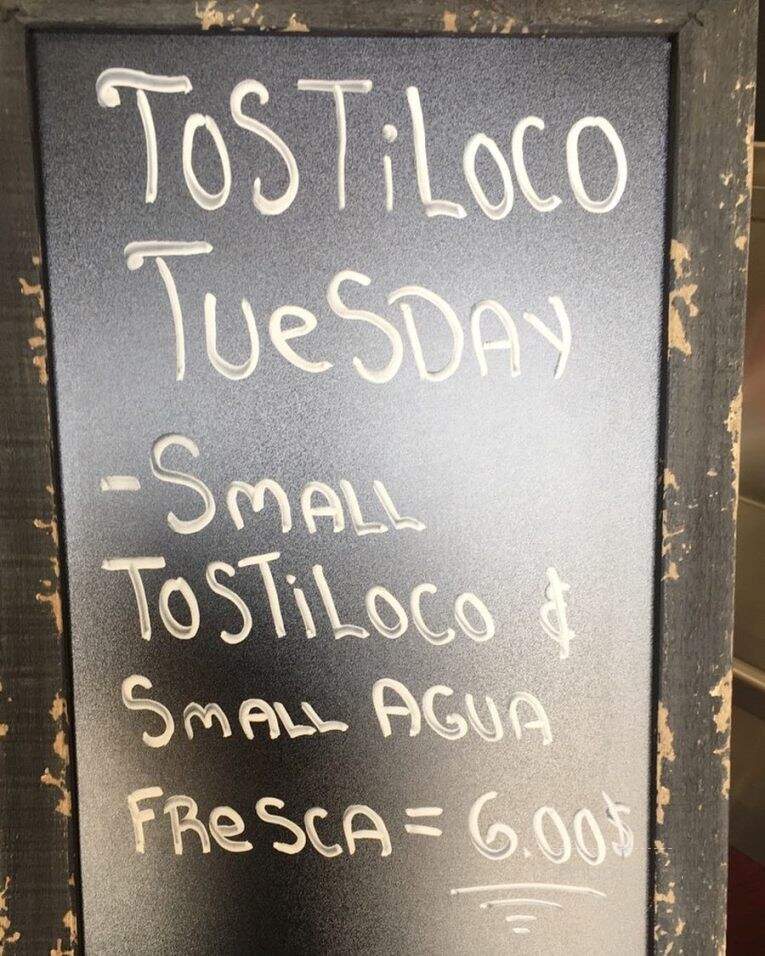 TOSTiLOCO
TUeSDAY
-SMALL
TOSTiLOCO &
SMALL AGUA
FReSCA = 6.00$